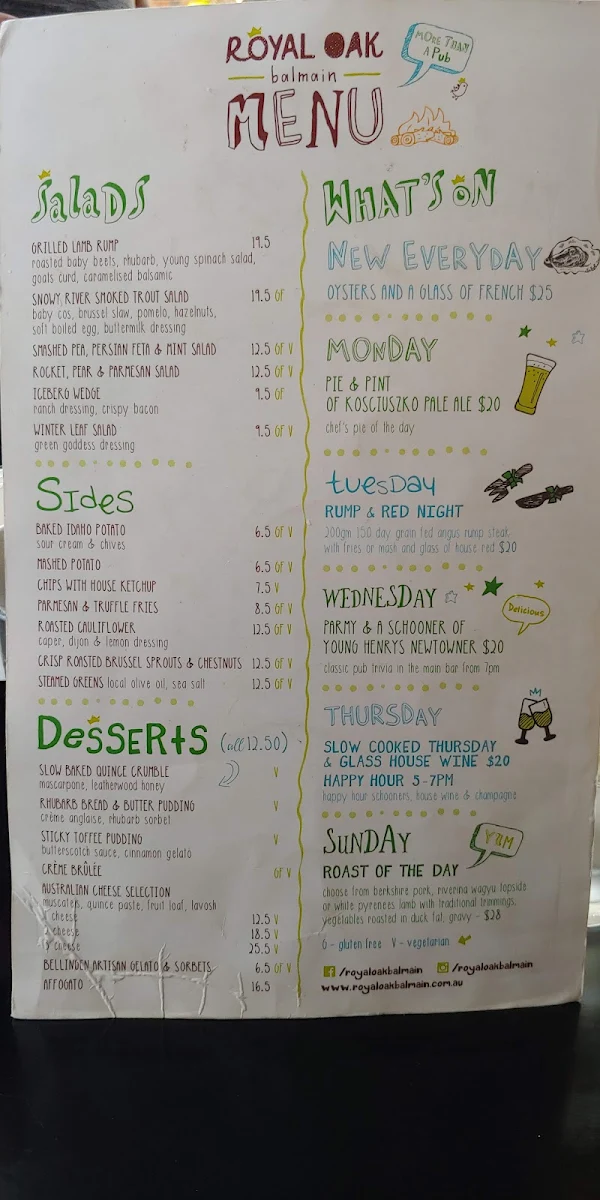 ROYAL OAK
balmain
MENU
MORE THAN
A Pub
Salads
GRILLED LAMB RUMP 19.5
roasted baby beets, rhubarb, young spinach salad,
goats curd, caramelised balsamic
SNOWY RIVER SMOKED TROUT SALAD 19.5 GF
baby cos, brussel slaw, pomelo, hazelnuts,
soft boiled egg, buttermilk dressing
SMASHED PEA, PERSIAN FETA & MINT SALAD 12.5 GF V
ROCKET, PEAR & PARMESAN SALAD 12.5 GF V
ICEBERG WEDGE 9.5 GF
ranch dressing, crispy bacon
WINTER LEAF SALAD 9.5 GF V
green goddess dressing
Sides
BAKED IDAHO POTATO 6.5 GF V
sour cream & chives
MASHED POTATO 6.5 GF V
CHIPS WITH HOUSE KETCHUP 7.5 V
PARMESAN & TRUFFLE FRIES 8.5 GF V
ROASTED CAULIFLOWER 12.5 GF V
caper, dijon & lemon dressing
CRISP ROASTED BRUSSEL SPROUTS & CHESTNUTS 12.5 GF V
STEAMED GREENS local olive oil, sea salt 12.5 GF V
Desserts (all 12.50)
SLOW BAKED QUINCE CRUMBLE V
mascarpone, leatherwood honey
RHUBARB BREAD & BUTTER PUDDING V
crème anglaise, rhubarb sorbet
STICKY TOFFEE PUDDING V
butterscotch sauce, cinnamon gelato
CRÈME BRÛLÉE GF V
AUSTRALIAN CHEESE SELECTION
muscatels, quince paste, fruit loaf, lavosh
1 cheese 12.5 V
2 cheese 18.5 V
3 cheese 25.5 V
BELLINDEN ARTISAN GELATO & SORBETS 6.5 GF V
AFFOGATO 16.5
WHAT'S ON
NEW EVERYDAY
OYSTERS AND A GLASS OF FRENCH $25
MONDAY
PIE & PINT
OF KOSCIUSZKO PALE ALE $20
chef's pie of the day
tuesDay
RUMP & RED NIGHT
200gm 150 day grain fed angus rump steak
with fries or mash and glass of house red $20
WEDNESDAY
Delicious
PARMY & A SCHOONER OF
YOUNG HENRYS NEWTOWNER $20
classic pub trivia in the main bar from 7pm
THURSDAY
SLOW COOKED THURSDAY
& GLASS HOUSE WINE $20
HAPPY HOUR 5-7PM
happy hour schooners, house wine & champagne
SUNDAY
YUM
ROAST OF THE DAY
choose from berkshire pork, riverina wagyu topside
or white pyrenees lamb with traditional trimmings,
vegetables roasted in duck fat, gravy - $28
G - gluten free V - vegetarian
/royaloakbalmain /royaloakbalmain
www.royaloakbalmain.com.au